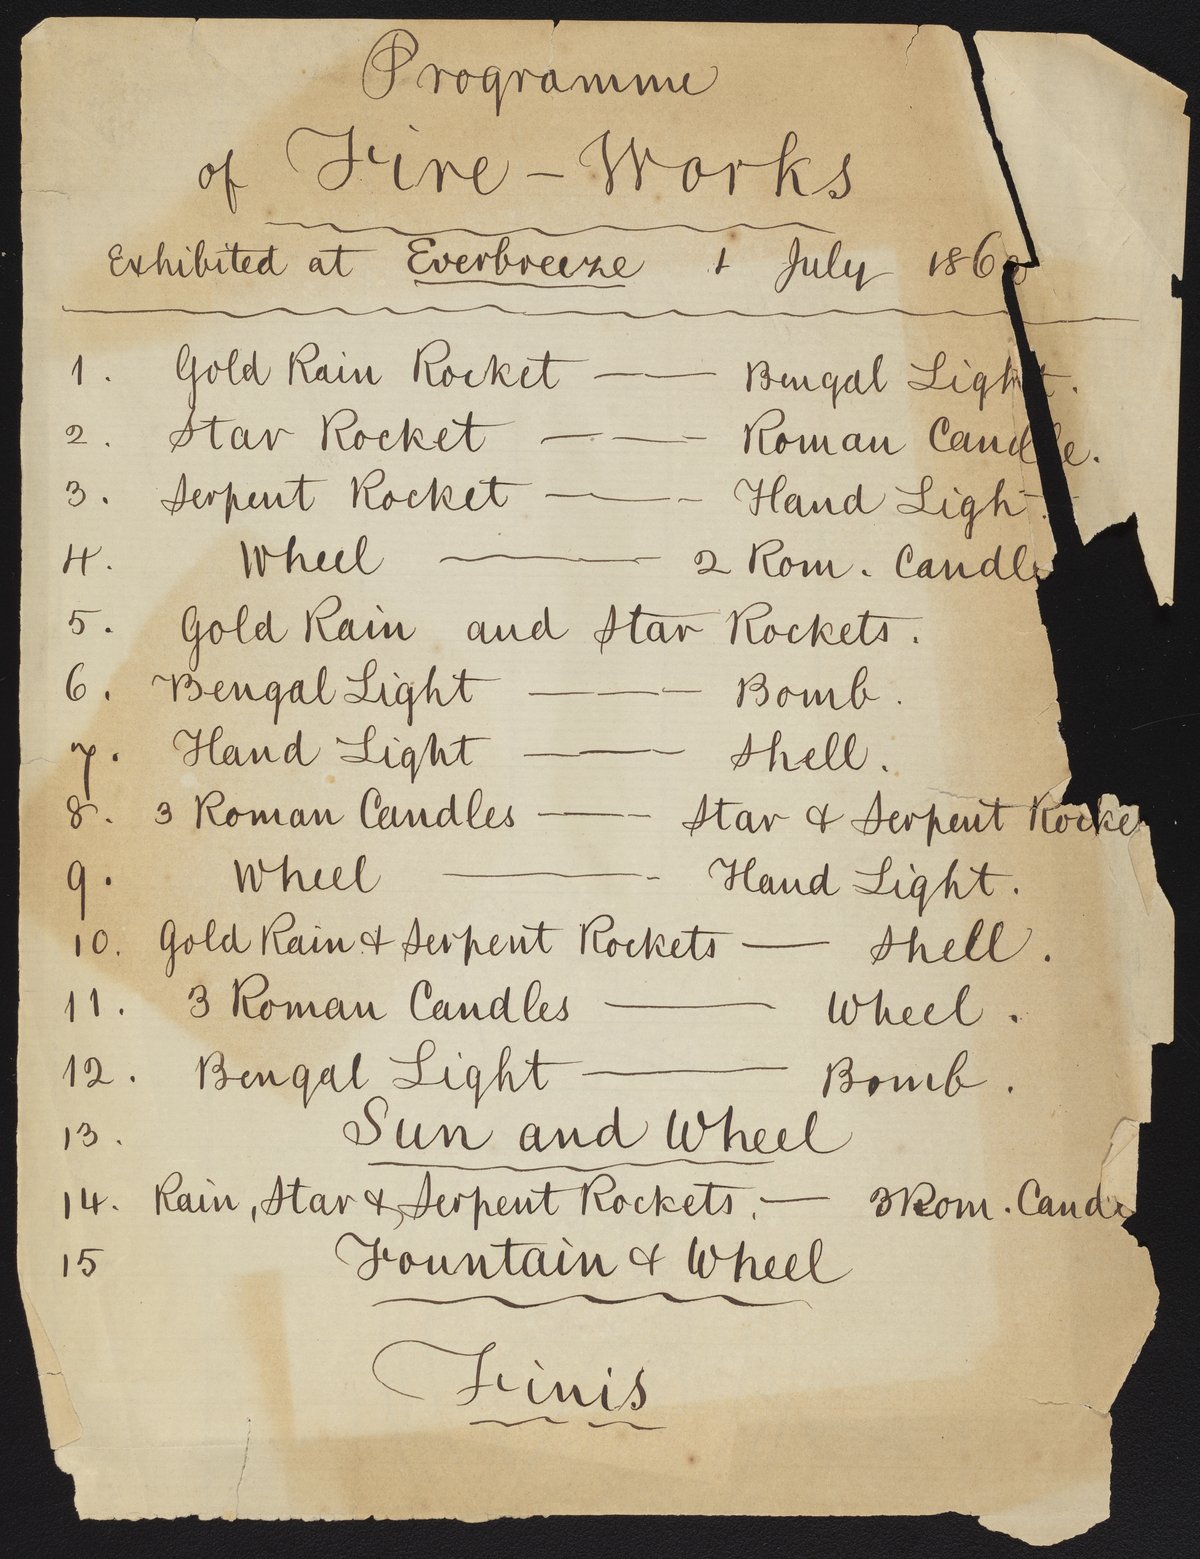 Programme
of Fire-Works
Exhibited at Everbreeze 1 July 186
1. Gold Rain Rocket —— Bengal Light.
2. Star Rocket ——— Roman Candle.
3. Serpent Rocket ——— Hand Ligh
4. Wheel ——— 2 Rom. Candle
5. Gold Rain and Star Rockets.
6. Bengal Light ——— Bomb.
7. Hand Light ——— Shell.
8. 3 Roman Candles ——— Star & Serpent Rocke
9. Wheel ——— Hand Light.
10. Gold Rain & Serpent Rockets — Shell.
11. 3 Roman Candles —— Wheel.
12. Bengal Light —— Bomb.
13. Sun and Wheel
14. Rain, Star & Serpent Rockets. — 3 Rom. Cand
15 Fountain & Wheel
Finis